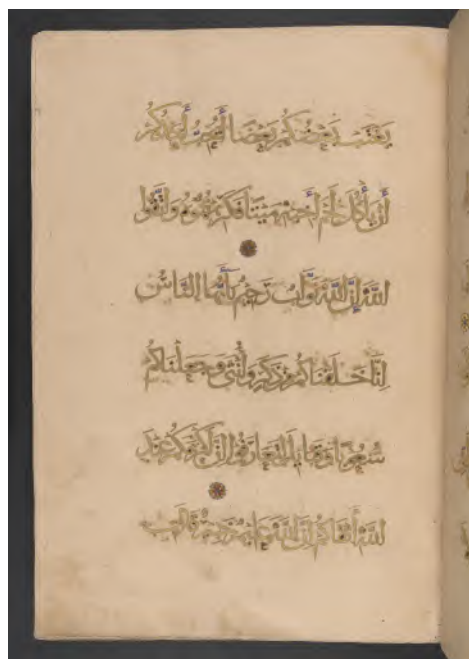 يَغْتَب بَعْضُكُم بَعْضًا أَيُحِبُّ أَحَدُكُمْ
أَن يَأْكُلَ لَحْمَ أَخِيهِ مَيْتًا فَكَرِهْتُمُوهُ وَاتَّقُوا
اللَّهَ إِنَّ اللَّهَ تَوَّابٌ رَحِيمٌ يَا أَيُّهَا النَّاسُ
إِنَّا خَلَقْنَاكُم مِن ذَكَرٍ وَأُنْثَى وَجَعَلْنَاكُمْ
شُعُوبًا وَقَبَايِلَ لِتَعَارَفُوا إِنَّ أَكْرَمَكُمْ عِندَ
اللَّهِ أَتْقَاكُمْ إِنَّ اللَّهَ عَلِيمٌ خَبِيرٌ قَالَت